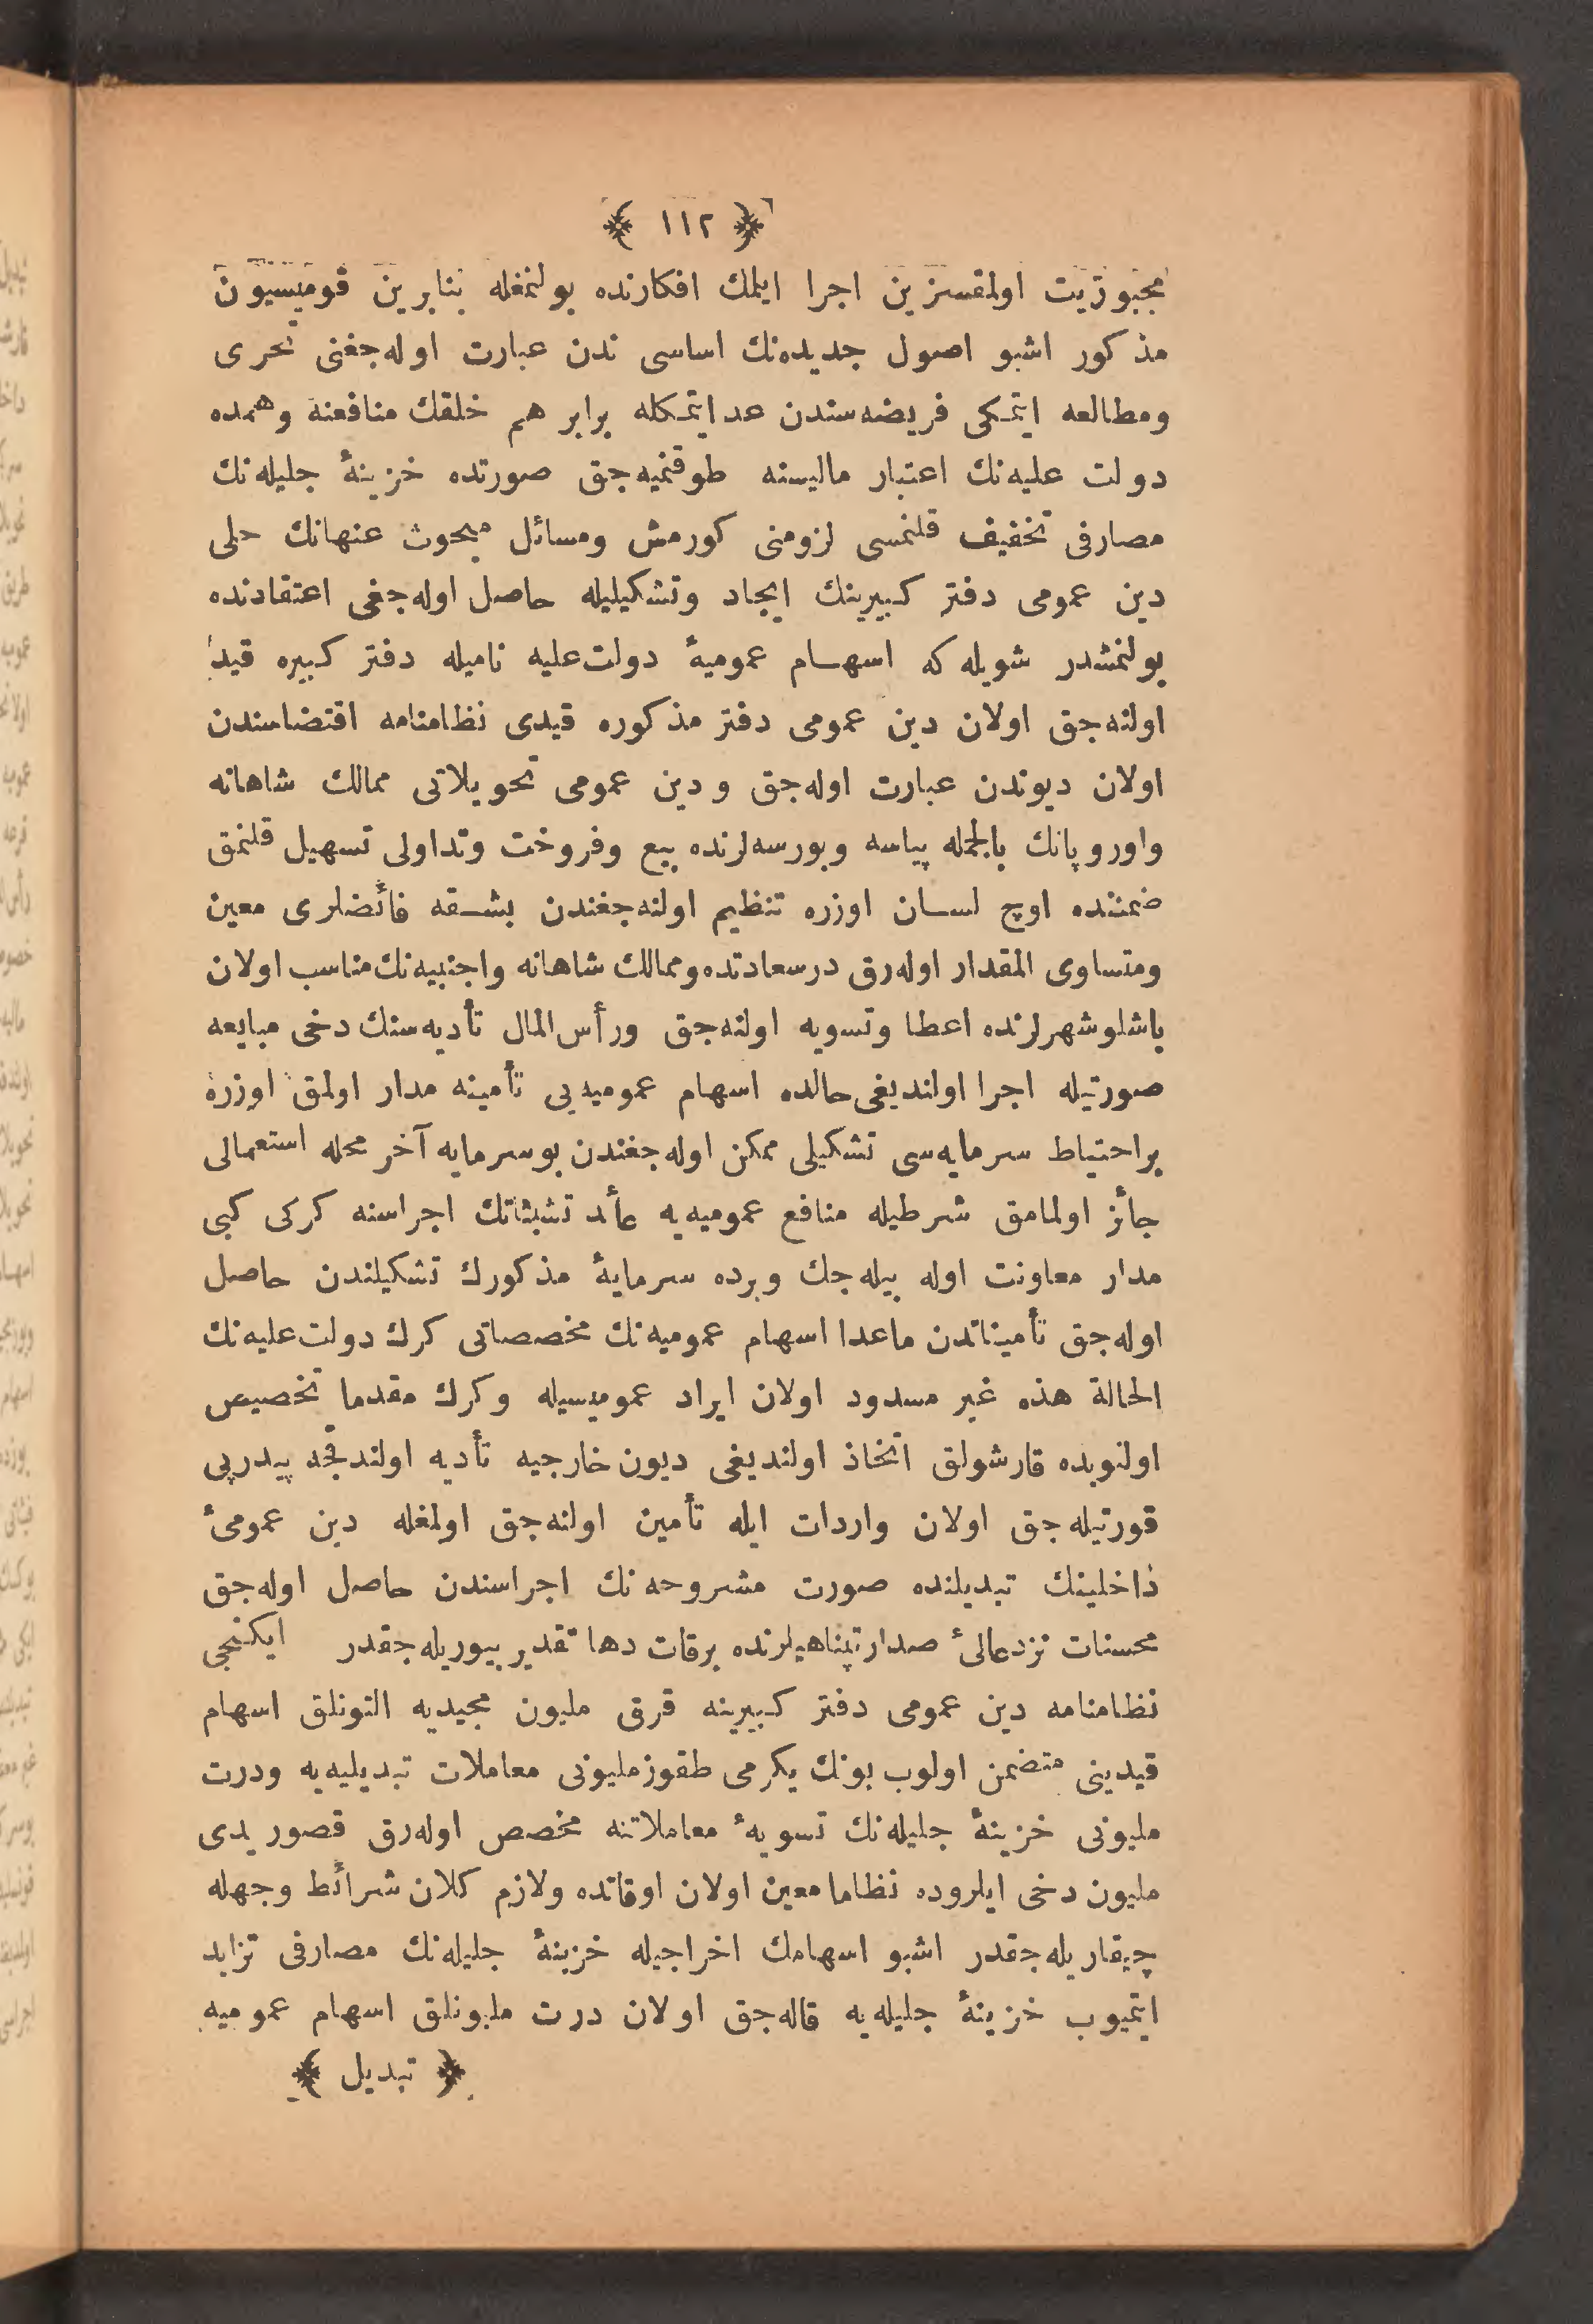 ﴿ ١١٢ ﴾
مجبوریت اولمقسزین اجرا ایلمك افكارنده بولنمغله بنابرین قومیسیون
مذكور اشبو اصول جدیده‌نك اساسی ندن عبارت اوله‌جغنی تحری
ومطالعه ایتمكی فریضه‌سندن عد ایتمكله برابر هم خلقك منافعنه وهمده
دولت علیه‌نك اعتبار مالیسنه طوقنمیه‌جق صورتده خزینهٔ جلیله‌نك
مصارفی تخفیف قلنمسی لزومنی كورمش ومسائل مبحوث عنهانك حلی
دین عمومی دفتر كبیرینك ایجاد وتشكیلیله حاصل اوله‌جغی اعتقادنده
بولنمشدر شویله كه اسهام عمومیهٔ دولت علیه نامیله دفتر كبیره قید
اولنه‌جق اولان دین عمومی دفتر مذكوره قیدی نظامنامه اقتضاسندن
اولان دیوندن عبارت اوله‌جق ودین عمومی تحویلاتی ممالك شاهانه
واوروپانك بالجمله پیاسه وبورسه‌لرنده بیع وفروخت وتداولی تسهیل قلنمق
ضمننده اوچ لسان اوزره تنظیم اولنه‌جغندن بشقه فائضلری معین
ومتساوی المقدار اوله‌رق درسعادتده وممالك شاهانه واجنبیه‌نك مناسب اولان
باشلوشهرلرنده اعطا وتسویه اولنه‌جق ورأس المال تأدیه‌سنك دخی مبایعه
صورتیله اجرا اولندیغی حالده اسهام عمومیه‌یی تأمینه مدار اولمق اوزره
براحتیاط سرمایه‌سی تشكیلی ممكن اوله‌جغندن بوسرمایه آخر محله استعمالی
جائز اولمامق شرطیله منافع عمومیه‌یه عائد تشبثاتك اجراسنه كركی كبی
مدار معاونت اوله بیله‌جك وبرده سرمایهٔ مذكورك تشكیلندن حاصل
اوله‌جق تأمیناتدن ماعدا اسهام عمومیه‌نك مخصصاتی كرك دولت علیه‌نك
الحالة هذه غیر مسدود اولان ایراد عمومیسیله وكرك مقدما تخصیص
اولنوبده قارشولق اتخاذ اولندیغی دیون خارجیه تأدیه اولندقجه پیدرپی
قورتیله‌جق اولان واردات ایله تأمین اولنه‌جق اولمغله دین عمومیٔ
داخلینك تبدیلنده صورت مشروحه‌نك اجراسندن حاصل اوله‌جق
محسنات نزدعالیٔ صدارتپناهیلرنده برقات دها تقدیر بیوریله‌جقدر ایكنجی
نظامنامه دین عمومی دفتر كبیرینه قرق ملیون مجیدیه التونلق اسهام
قیدینی متضمن اولوب بونك یكرمی طقوز ملیونی معاملات تبدیلیه‌یه ودرت
ملیونی خزینهٔ جلیله‌نك تسویهٔ معاملاتنه مخصص اوله‌رق قصور یدی
ملیون دخی ایلروده نظاما معین اولان اوقاتده ولازم كلان شرائط وجهله
چیقاریله‌جقدر اشبو اسهامك اخراجیله خزینهٔ جلیله‌نك مصارفی تزاید
ایتمیوب خزینهٔ جلیله‌یه قاله‌جق اولان درت ملیونلق اسهام عمومیه
﴿ تبدیل ﴾